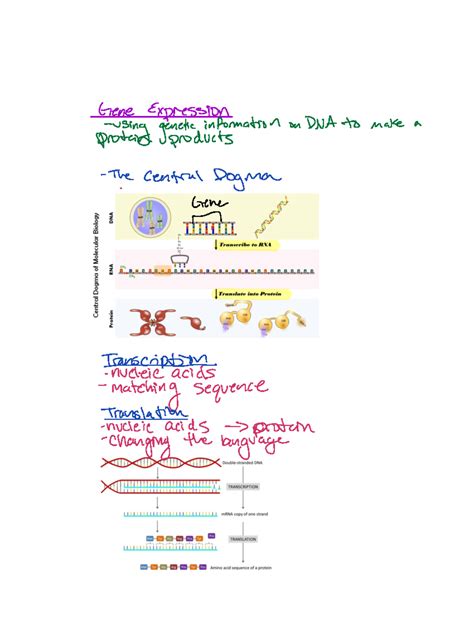 Gene Expression
→ using genetic information on DNA to make a
protein products
- The Central Dogma
Gene
Central Dogma of Molecular Biology
DNA
Transcribe to RNA
RNA
Translate into Protein
Protein
Transcription
- nucleic acids
- matching sequence
Translation
- nucleic acids → protein
- Changing the language
Double-stranded DNA
TRANSCRIPTION
mRNA copy of one strand
TRANSLATION
Amino acid sequence of a protein